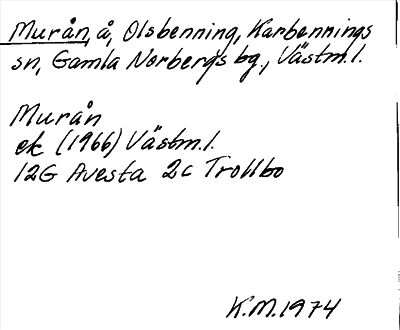 Murån, å, Olsbenning, Karbennings
sn, Gamla Norbergs bg., Västm.l.
Murån
ek (1966) Västm.l.
12G Avesta 2c Trollbo
K.M.1974